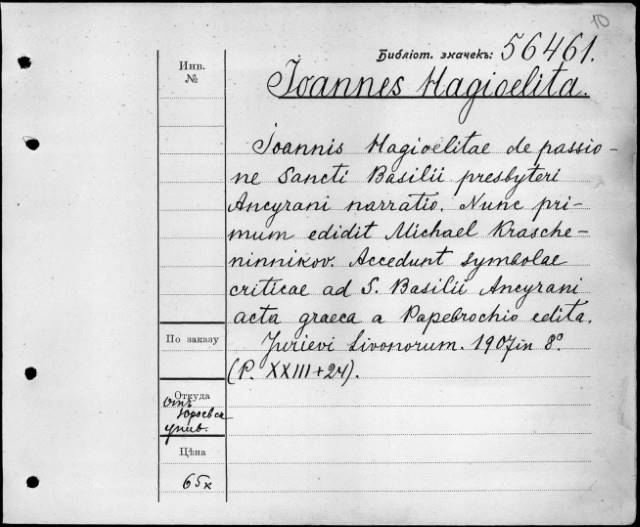 10
Библіот. значекъ: 56461.
Инв.
№
Joannes Hagioelita.
Joannis Hagioelitae de passio-
ne Sancti Basilii presbyteri
Ancyrani narratio. Nunc pri-
mum edidit Michael Krasche-
ninnikov. Accedunt symbolae
criticae ad S. Basilii Ancyrani
acta graeca a Papebrochio edita.
Jurievi Livonorum. 1907 in 8º
(P. XXIII+24).
По заказу
Откуда
Отъ
Юрьевск
унив.
Цѣна
65к